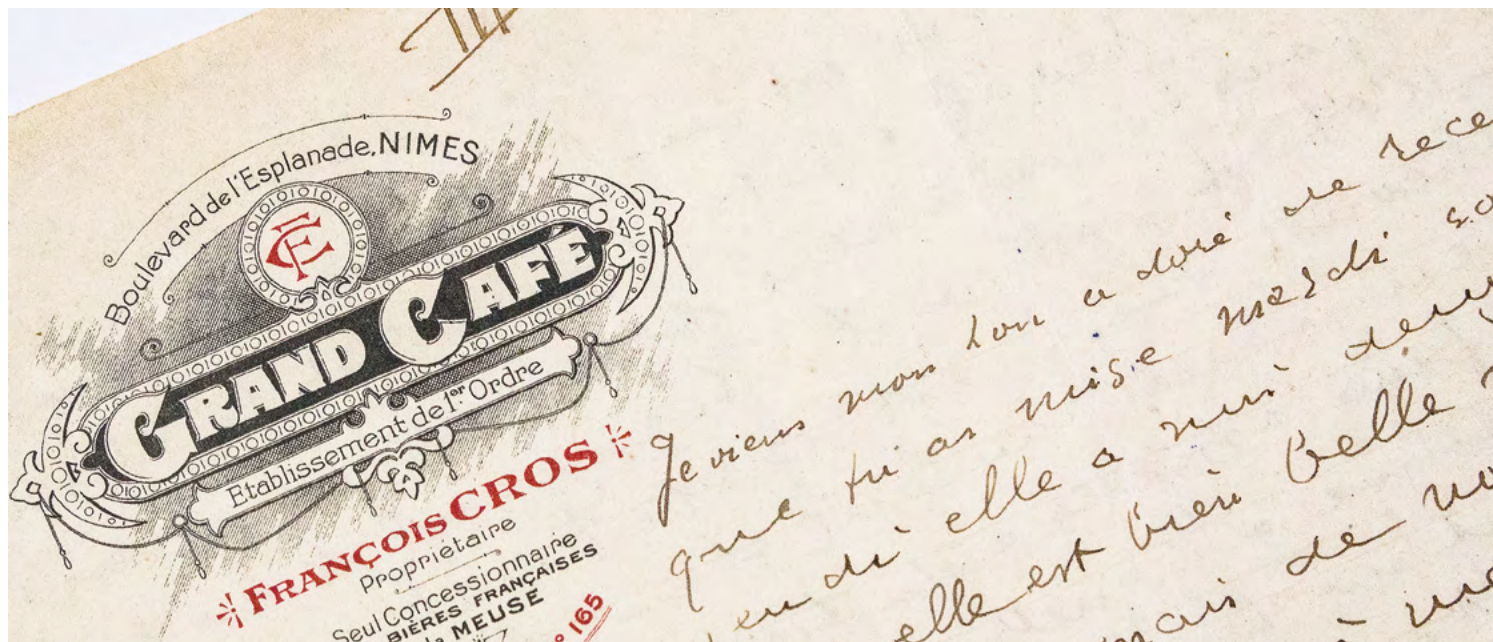 Boulevard de l'Esplanade, NIMES
CF
GRAND CAFÉ
Etablissement de 1er Ordre
FRANÇOIS CROS
Propriétaire
Seul Concessionnaire
BIÈRES FRANÇAISES
MEUSE
165
Je viens mon Lou adoré de rece
que tu as mise mardi so
elle a mis deux
elle est bien belle
mais de
à